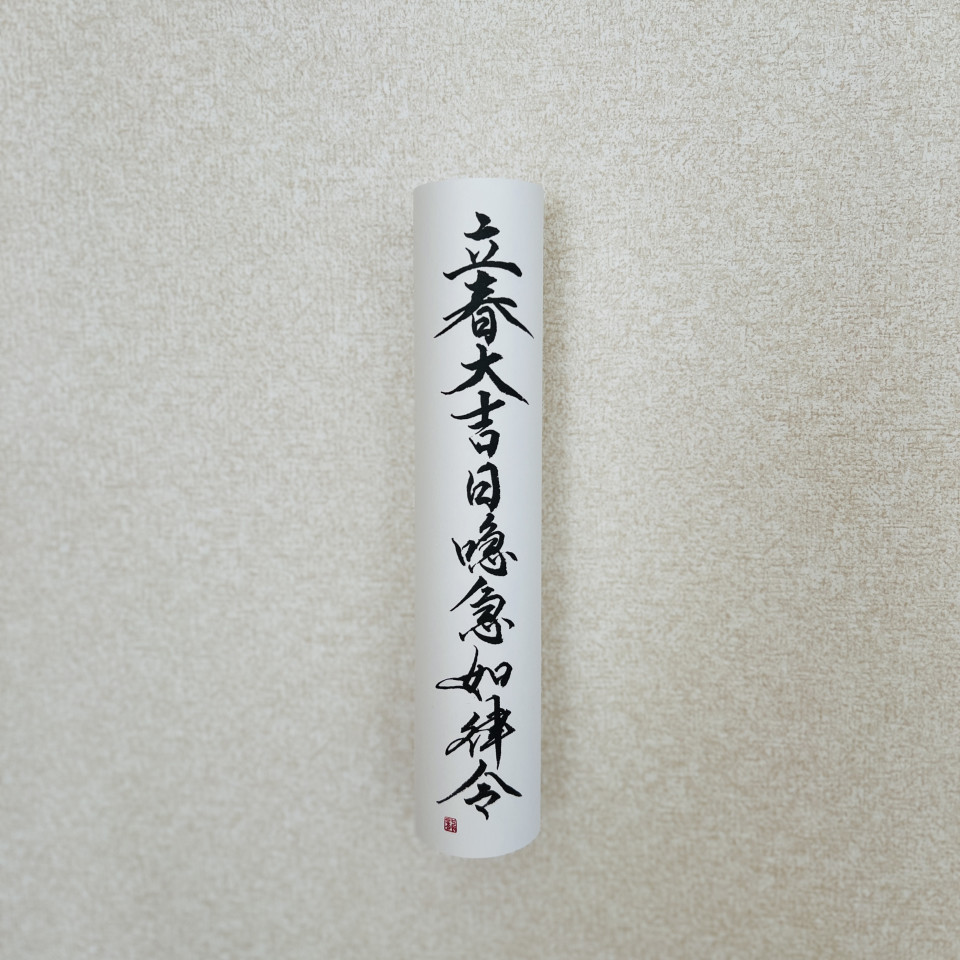 立春大吉日喼急如律令